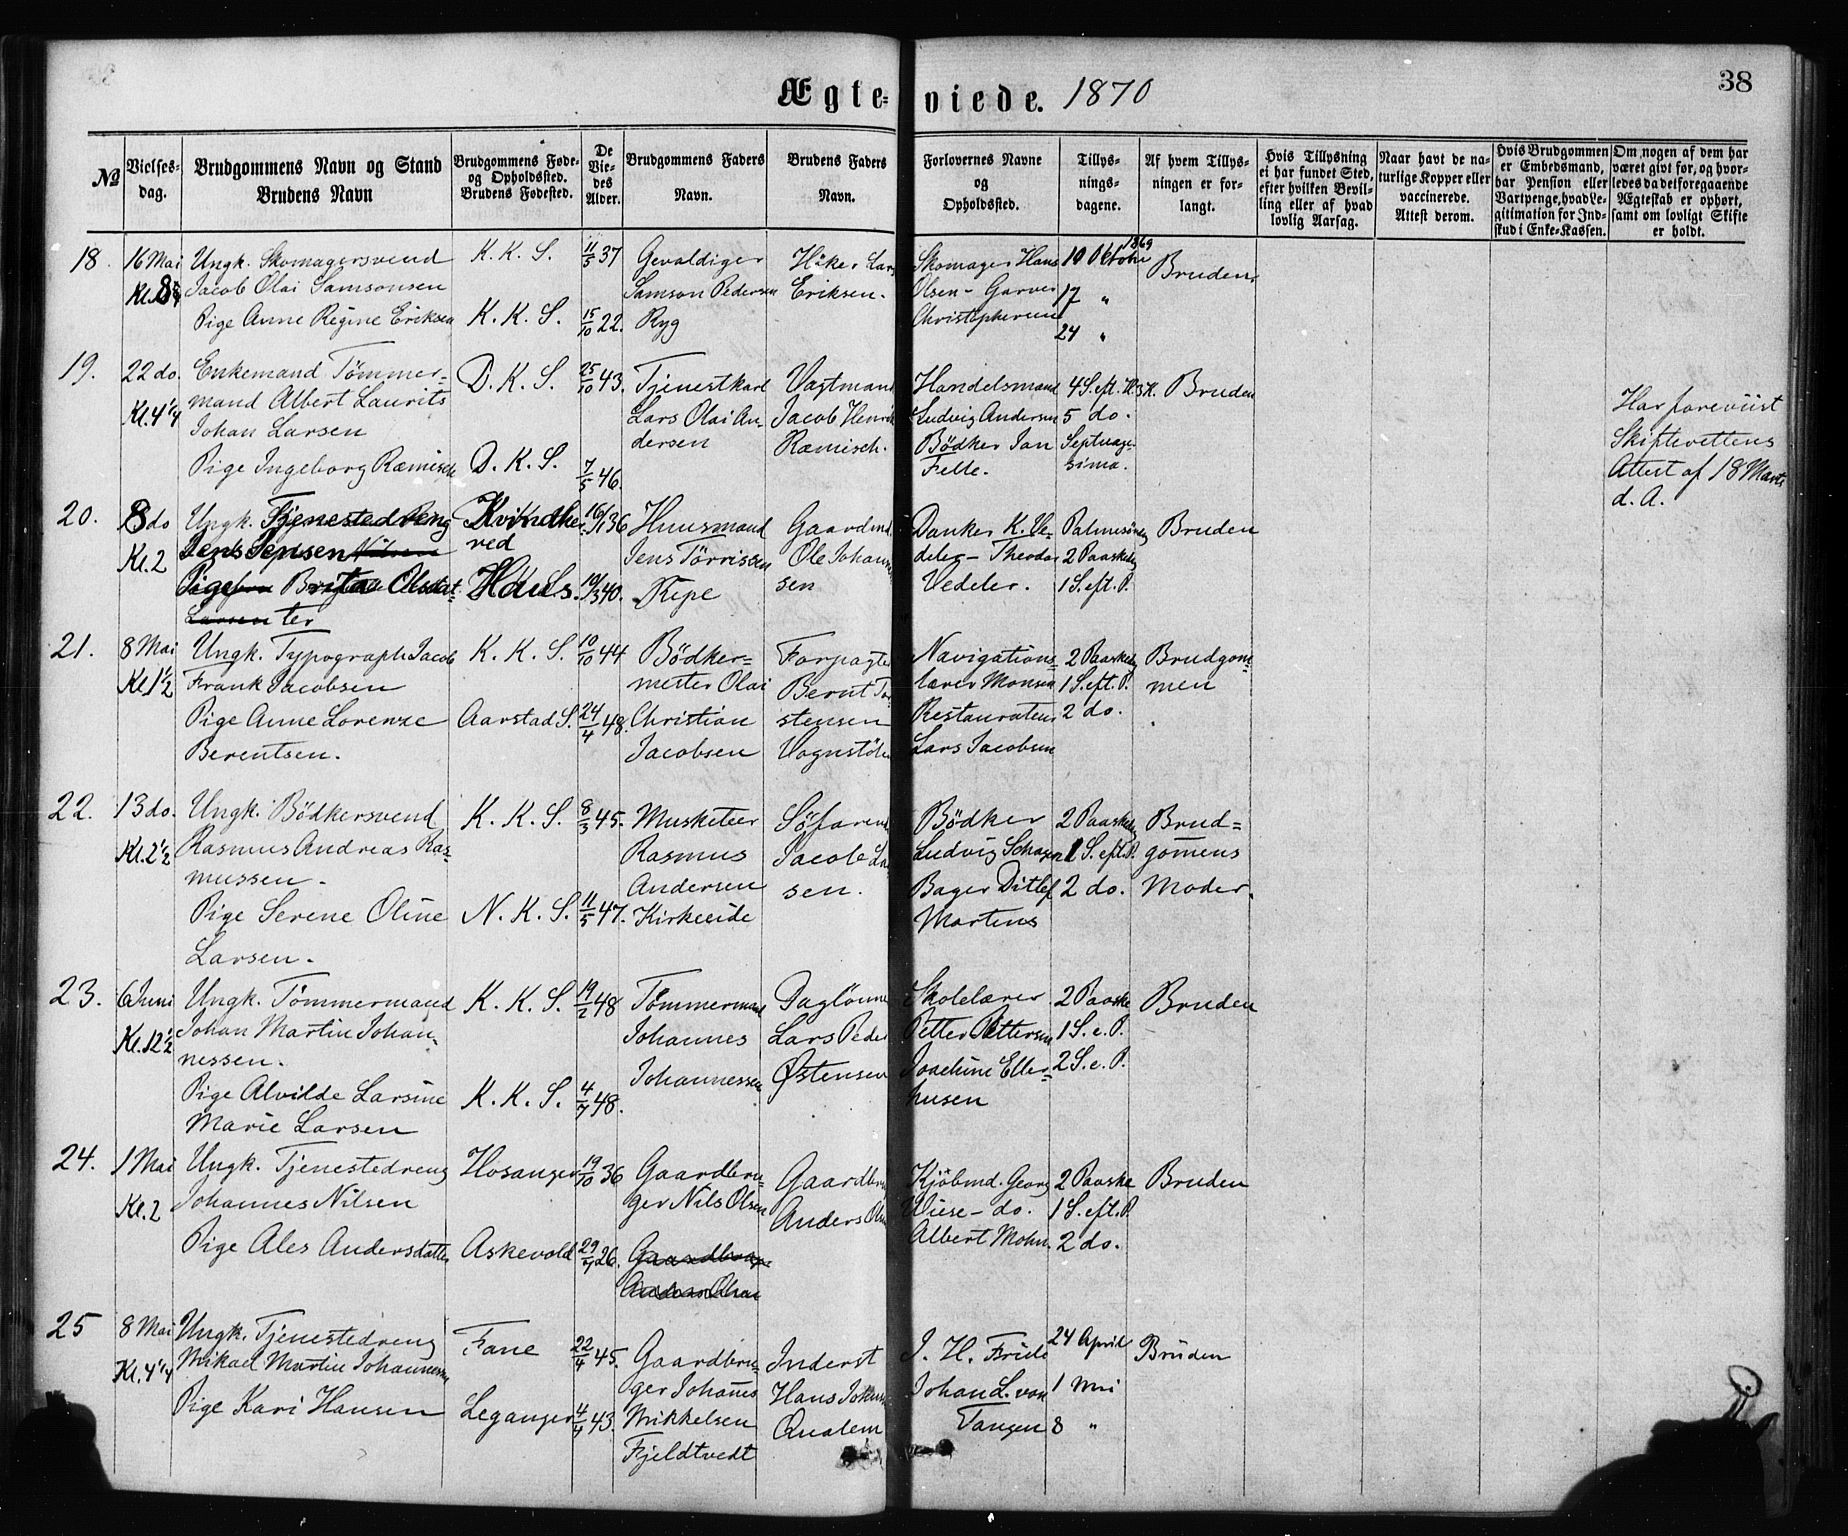 Ægteviede. 1870
38
№
Vielses-
dag.
Brudgommens Navn og Stand
Brudens Navn
Brudgommens Føde-
og Opholdssted.
Brudens Fødested.
De
Vie-
des
Alder.
Brudgommens Faders
Navn.
Brudens Faders
Navn.
Forlovernes Navne
og
Opholdssted.
Tillys-
nings-
dagene.
Af hvem Tillys-
ningen er for-
langt.
Hvis Tillysning
ei har fundet Sted,
efter hvilken Bevil-
ling eller af hvad
lovlig Aarsag.
Naar havt de na-
turlige Kopper eller
vaccinerede.
Attest derom.
Hvis Brudgommen
er Embedsmand,
har Pension eller
Vartpenge, hvad Le-
gitimation for Ind-
skud i Enke-Kassen.
Om nogen af dem har
været givt før, og hvor-
ledes da det foregaaende
Ægteskab er ophørt,
samt om lovligt Skifte
er holdt.
18.
16 Mai
Ungk. Skomagersvend
Jacob Olai Samsonsen
Pige Anne Regine Eriksen
K. K. S.
K. K. S.
11/5 37
15/10 22.
Gevaldiger
Samson Pedersen
Ryg
Høker Lars
Eriksen.
Skomager Hans
Olsen - Garver
Christophersen
1869
10 Oktober
17 "
24 "
Bruden
19.
22 do.
Kl. 4 1/4
Enkemand Tømmer-
mand Albert Laurits
Johan Larsen
Pige Ingeborg Ramisch
D. K. S.
D. K. S.
25/10 43.
7/5 46.
Tjenestkarl
Lars Olai An-
dersen
Vagtmand
Jacob Henrik
Ramisch.
Handelsmand
Ludvig Andersen
Bødker Jan
Felle.
4 S. eft. H. 3 K.
5 do.
Septuage-
sima.
Bruden
Har foreviist
Skifterettens
Attest af 18 Marts
d. A.
20.
8 do
Kl. 2
Ungk. Tjenestedreng
Jens Jensen
Pige Brita Olsdat-
ter
Kvindhe-
red
Haus.
16/11 36
10/3 40.
Huusmand
Jens Tørrissen
Repe
Gaardmd.
Ole Johanne-
sen
Danker K. Ve-
deler - Theodor
Vedeler.
Palmesøndag
2 Paaskedag
1 S. eft. P.
Bruden
21.
8 Mai
Kl. 1 1/2
Ungk. Typograph Jacob
Frank Jacobsen
Pige Anne Lorenze
Berentsen.
K. K. S.
Aarstad S.
10/10 44
24/4 48.
Bødker-
mester Olai
Christian
Jacobsen
Forpagter
Bernt Tor-
stensen
Vognstøl
Navigations-
lærer Monsen
Restauratør
Lars Jacobsen
2 Paaskedag
1 S. eft. P.
2 do.
Brudgom-
men
22.
13 do.
Kl. 2 1/2
Ungk. Bødkersvend
Rasmus Andreas Ras-
mussen.
Pige Serene Oline
Larsen.
K. K. S.
N. K. S.
8/3 45.
11/5 47.
Musketeer
Rasmus
Andersen
Kirkeeide
Søfarende
Jacob Lar-
sen.
Bødker
Ludvig
Bager Ditlef
Martens
2 Paaskedag
1 S. eft. P.
2 do.
Brud-
gomens
Moder.
23.
6 Juni
Kl. 12 1/2
Ungk. Tømmermand
Johan Martin Johan-
nessen.
Pige Alvilde Larsine
Marie Larsen
K. K. S.
K. K. S.
19/2 48
4/7 48.
Tømmermand
Johannes
Johannessen
Dagløuner
Lars Peder
Østensen
Skolelærer
Petter Pettersen
Joachim Eller-
husen
2 Paaske
1 S. e. P.
2 S. e. P.
Bruden
24.
1 Mai
Kl. 2
Ungk. Tjenestedreng
Johannes Nilsen
Pige Ales Andersdatter
Hosanger
Askevold
19/10 36
26.
Gaardbru-
ger Nils Olsen
Gaardbr
Anders Olsen
Kjøbmd. Georg
Wiese - do.
Albert Mohn.
2 Paaske
1 S. eft. P.
2 do.
Bruden
25
8 Mai
Kl. 4 1/4
Ungk. Tjenestedreng
Mikael Martin Johannesen
Pige Kari Hansen
Fane
Leganger
22/4 45.
4/4 43.
Gaardbru-
ger Johannes
Mikkelsen
Fjeldtvedt
Inderst
Hans Johan
Qualem
J. H. Friele
Johan L. von
Tangen
24 April
1 Mai
8 "
Bruden